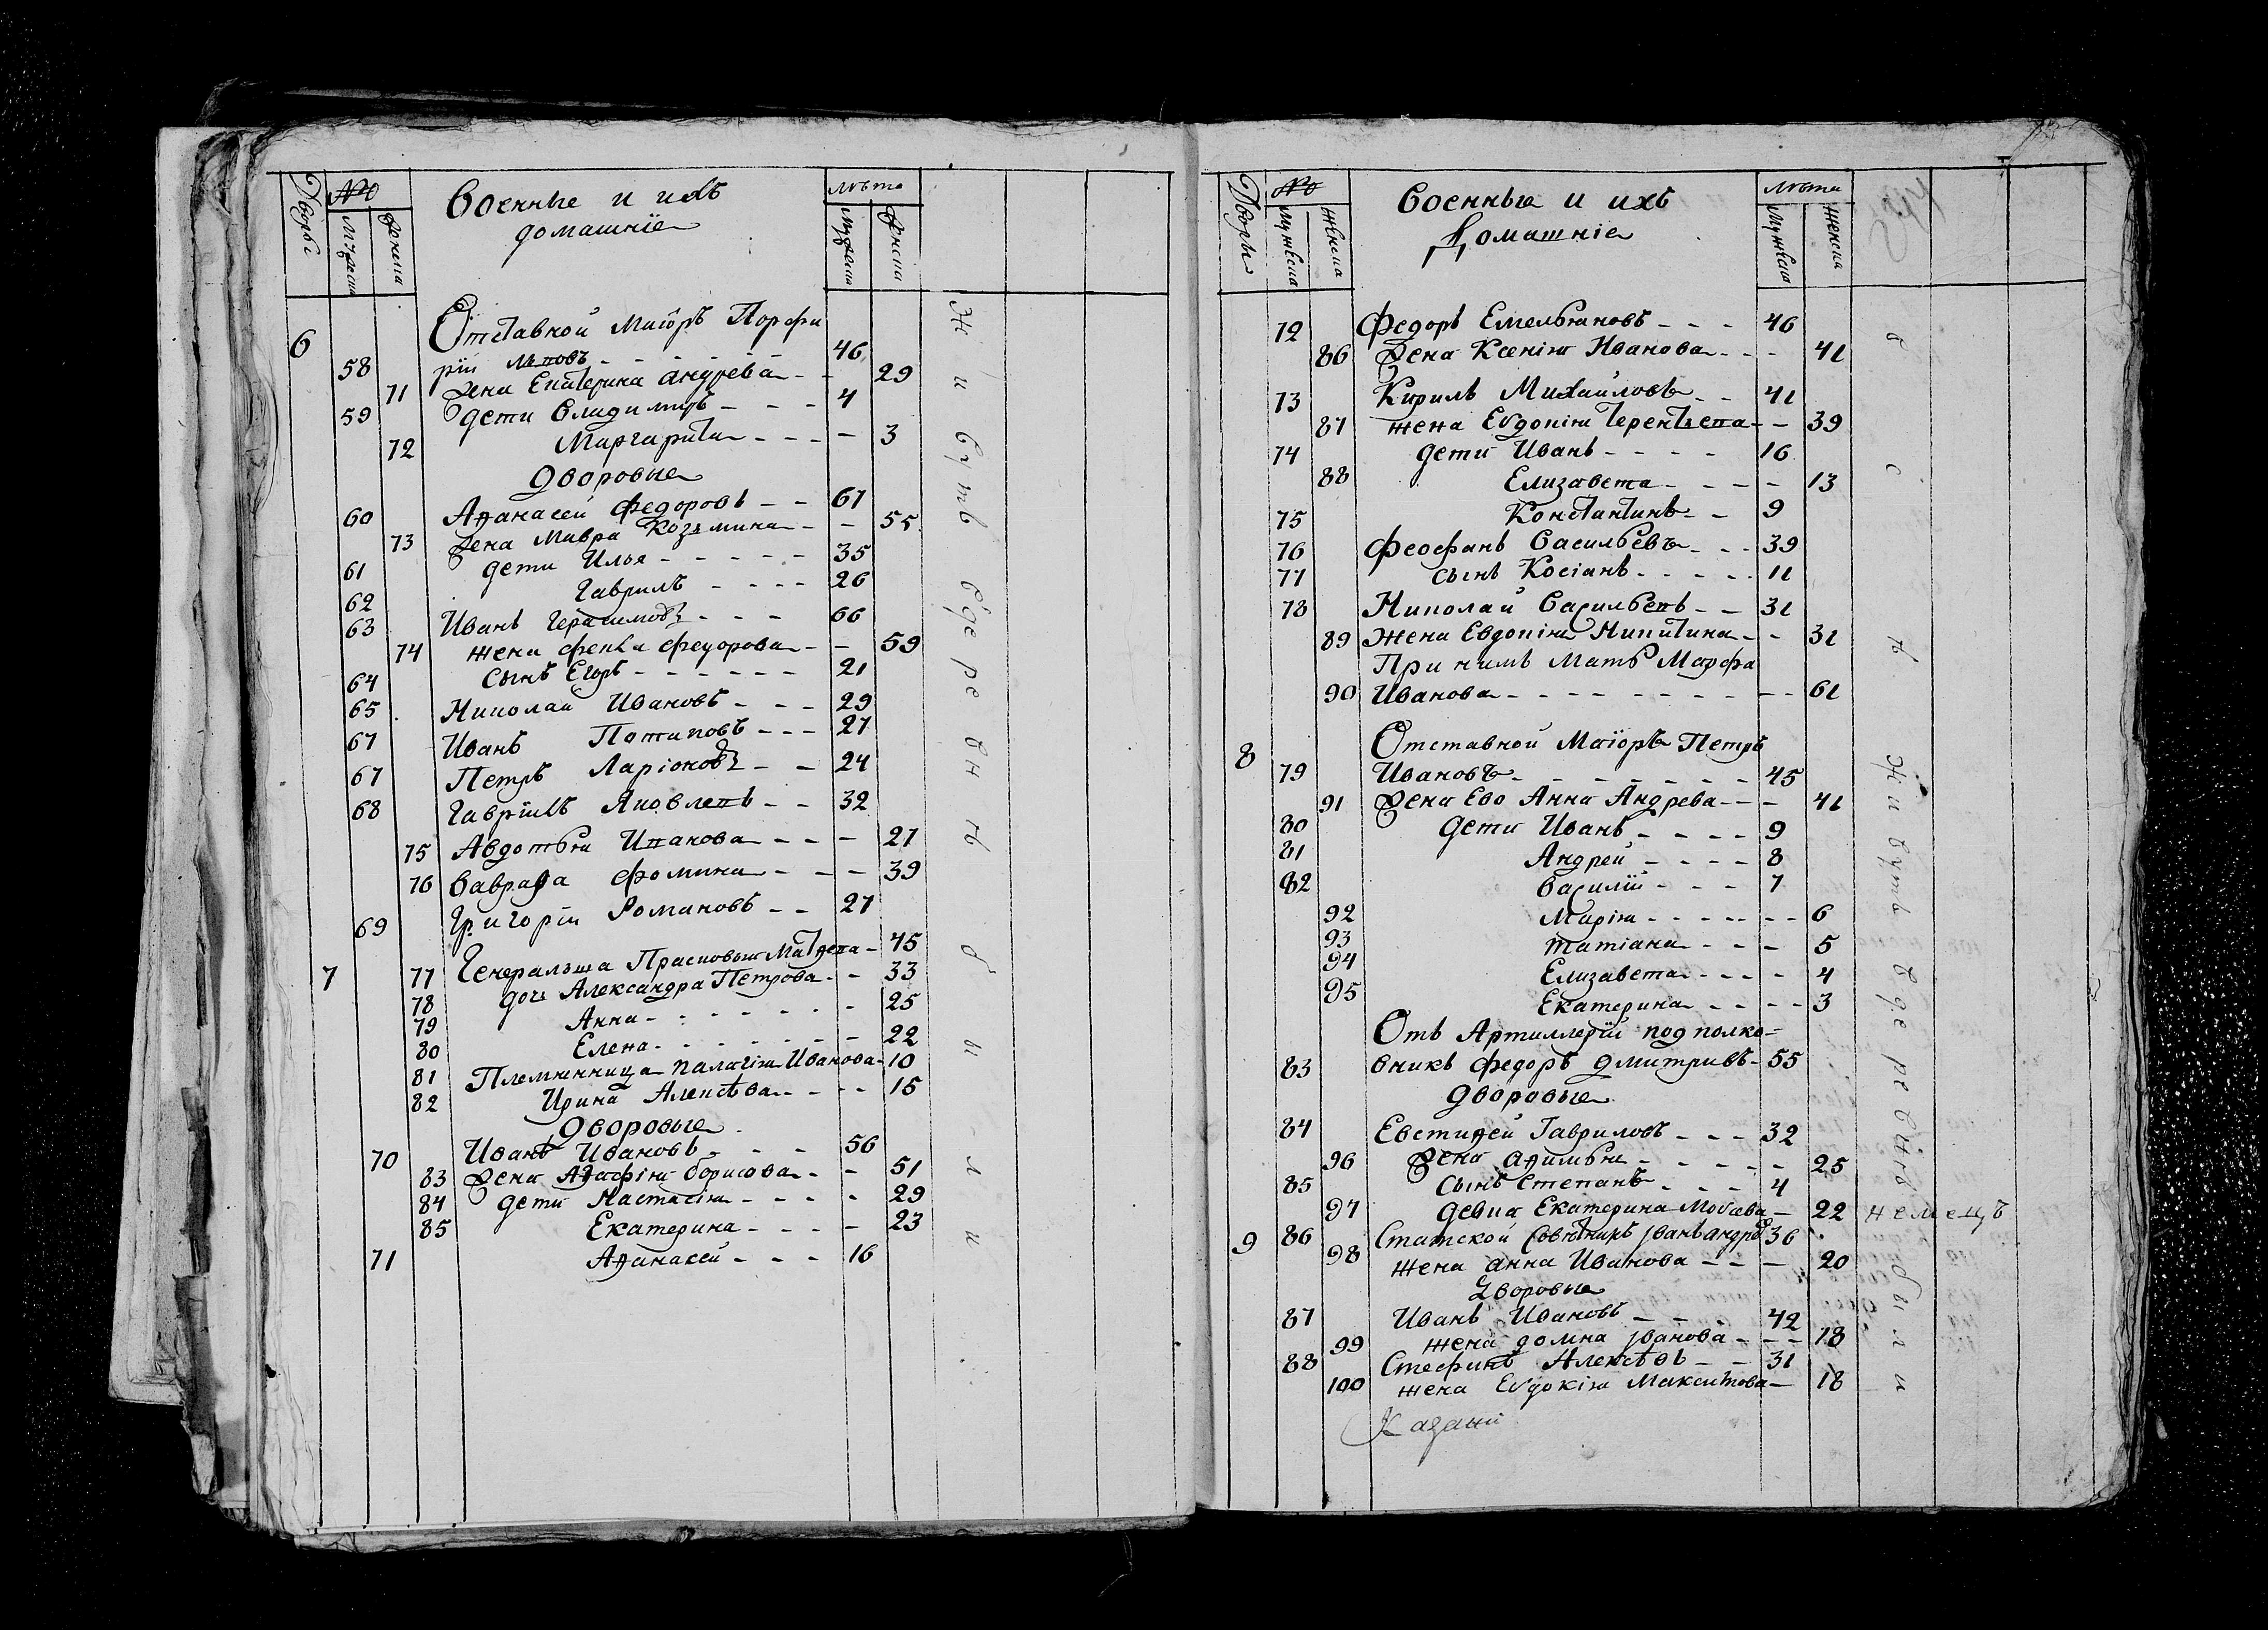 Дворы № Военные и ихъ лѣта
Мужеска Женска домашнїе мужеска женска
6 Отставной Маїоръ Порфи
58 рїй 46
71 жена Екатерина андрева - - 29
59 дети Владимиръ - - - 4
72 Маргарита - - - - 3
Дворовые
60 Аѳанасей Федоровъ - - 67
73 жена Мавра Козьмина - - 55
61 дети Илья - - - - - 35
62 Гаврилъ - - - - 26
63 Иванъ Герасимовъ - - - 66
74 жена Фекла Федорова - - 59
64 сынъ Егоръ - - - - - - 21
65 Николай Ивановъ - - - 29
67 Иванъ Потаповъ - - - 27
67 Петръ Ларїоновъ - - 24
68 Гаврїилъ Яковлевъ - - 32
75 Авдотья Иванова - - - 27
76 Варвара Фомина - - - 39
69 Григорїи Романовъ - - 27
7 77 Генеральша Прасковья Матвева - 45
78 дочь Александра Петрова - - 33
79 Анна - - - - - - - 25
80 Елена - - - - - - - 22
81 Племянница палагїя Иванова - 10
82 Ирина Алексѣва - - - - 15
Дворовые
70 Иванъ Ивановъ - - - 56
83 жена Агафїя борисова - - 51
84 дети Настасїя - - - - 29
85 Екатерина - - - - 23
71 Аѳанасей - - - 16
Живутъ вдеревнѣ
были
Дворы № Военныя и ихъ лѣта
Мужеска Женска Домашнїе Мужеска Женска
72 Федоръ Емельяновъ - - - 46
86 жена Ксенїя Иванова - - - 41
73 Кирилъ Михайловъ - - 41
87 жена Евдокїя Терентьева - - 39
74 дети Иванъ - - - - 16
88 Елизавета - - - - 13
75 Константинъ - - 9
76 Феофанъ Васильевъ - - - 39
77 сынъ Косїанъ - - - - - 11
78 Николай Васильевъ - - 31
89 Жена Евдокїя Никитина - - 31
При нимъ Мать Марфа
90 Иванова - - - - - - - - - - 61
8 Отставной Маїоръ Петръ
79 Ивановъ - - - - - - - 45
91 жена Ево Анна Андрева - - - 41
80 Дети Иванъ - - - - 9
81 Андрей - - - - 8
82 Василїй - - - 7
92 Марїя - - - - - - - 6
93 татїана - - - - 5
94 Елизавета - - - - - 4
95 Екатерина - - - - - 3
Отъ Артиллерїй подполко-
83 вникъ Федоръ Дмитривъ - 55
Дворовые
84 Евстифей Гавриловъ - - - 32
96 жена - - - - - 25
85 сынъ Степанъ - - - 4
97 девка Екатерина - 22 немецъ
9 86 Статской Совѣтникъ Iванъ андре 36
98 жена анна Иванова - - - 20
Дворовые
87 Иванъ Ивановъ - - - 42
99 жена домна Iванова - - - 18
88 Стефинъ Алексѣвъ - - 31
100 жена Евдокїя Максимова - 18
Казани
всѣ живутъ вдеревнѣ были